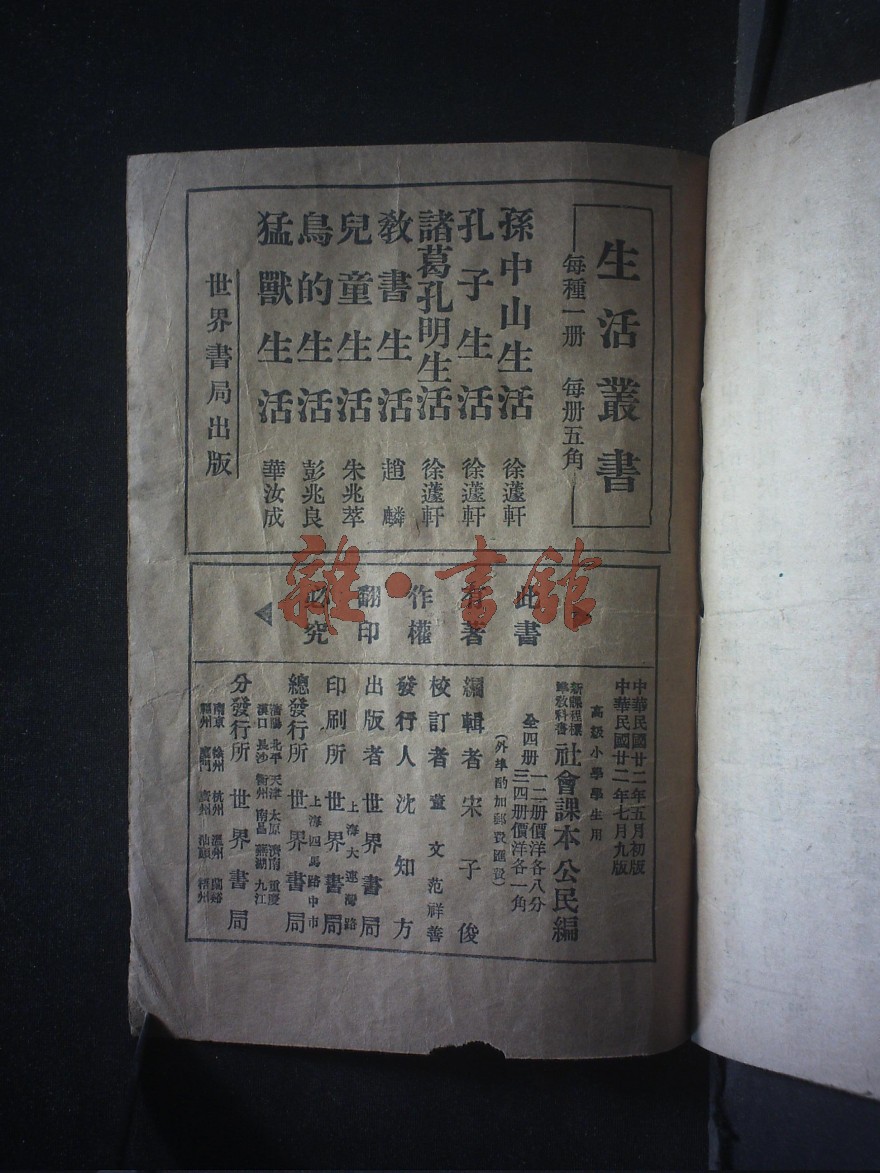 生活叢書
每種一册 每册五角
孫中山生活 徐蘧軒
孔子生活 徐蘧軒
諸葛孔明生活 徐蘧軒
教書生活 趙麟
兒童生活 朱兆萃
鳥的生活 彭兆良
猛獸生活 華汝成
世界書局出版
雜·書館
此書
有著
作權
翻印
必究
中華民國廿二年五月初版
中華民國廿二年七月九版
高級小學學生用
新課程標
準教科書
社會課本 公民編
全四册
一二册價洋各八分
三四册價洋各一角
(外埠酌加郵費匯費)
編輯者 宋子俊
校訂者 董文 范祥善
發行人 沈知方
出版者 世界書局
上海大連灣路
印刷所 世界書局
上海四馬路中市
總發行所 世界書局
瀋陽 北平 天津 太原 濟南 重慶
漢口 長沙 衡州 南昌 蕪湖 九江
分發行所 世界書局
南京 徐州 杭州 溫州 蘭谿
福州 廈門 廣州 汕頭 梧州